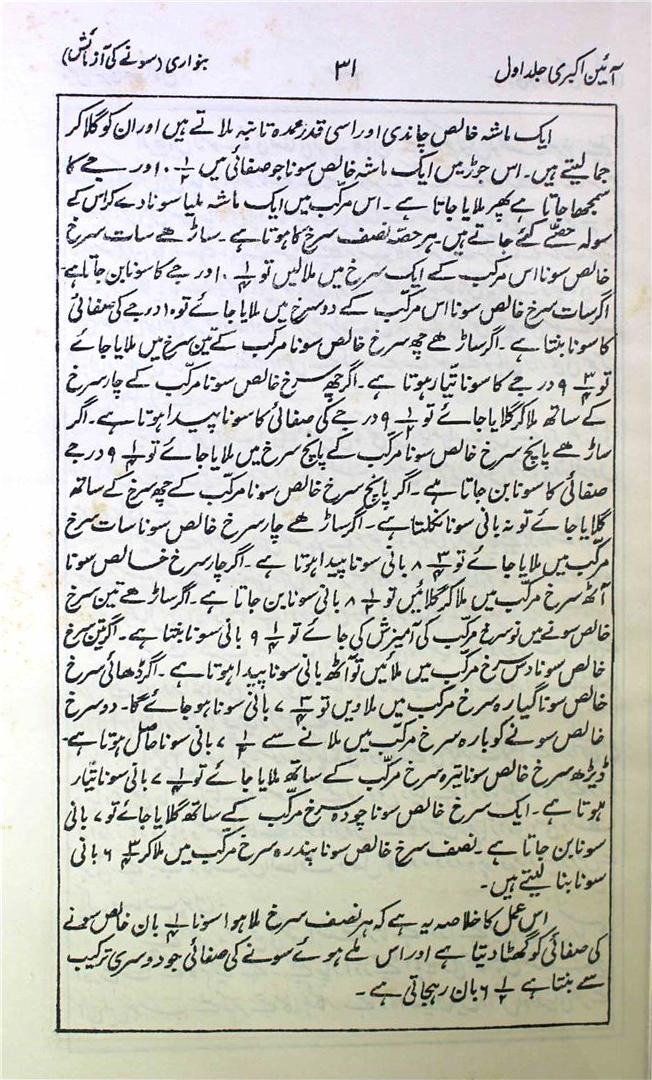 آئین اکبری جلد اول ۳۱ بنواری (سونے کی آزمائش)
ایک ماشہ خالص چاندی اور اسی قدر عمدہ تانبہ ملاتے ہیں اور ان کو گلا کر
جما لیتے ہیں۔ اس جوڑ میں ایک ماشہ خالص سونا جو صفائی میں ۱۰ ۱/۲ درجے کا
سمجھا جاتا ہے پھر ملایا جاتا ہے۔ اس مرکّب میں ایک ماشہ ملیا سونا دے کر اس کے
سولہ حصّے کئے جاتے ہیں۔ ہر حصّہ نصف سرخ کا ہوتا ہے۔ ساڑھے سات سرخ
خالص سونا اس مرکب کے ایک سرخ میں ملالیں تو ۱۰ ۱/۴ درجے کا سونا بن جاتا ہے
اگر سات سرخ خالص سونا اس مرکّب کے دو سرخ میں ملایا جائے تو ۱۰ درجے کی صفائی
کا سونا بنتا ہے۔ اگر ساڑھے چھ سرخ خالص سونا مرکب کے تین سرخ میں ملایا جائے
تو ۹ ۳/۴ درجے کا سونا تیّار ہوتا ہے۔ اگر چھ سرخ خالص سونا مرکّب کے چار سرخ
کے ساتھ ملا کر گلایا جائے تو ۹ ۱/۲ درجے کی صفائی کا سونا پیدا ہوتا ہے۔ اگر
ساڑھے پانچ سرخ خالص سونا مرکّب کے پانچ سرخ میں ملایا جائے تو ۹ ۱/۴ درجے
صفائی کا سونا بن جاتا ہے۔ اگر پانچ سرخ خالص سونا مرکّب کے چھ سرخ کے ساتھ
گلایا جائے تو نہ بانی سونا نکلتا ہے۔ اگر ساڑھے چار سرخ خالص سونا سات سرخ
مرکّب میں ملایا جائے تو ۸ ۳/۴ بانی سونا پیدا ہوتا ہے۔ اگر چار سرخ خالص سونا
آٹھ سرخ مرکّب میں ملا کر گلائیں تو ۸ ۱/۲ بانی سونا بن جاتا ہے۔ اگر ساڑھے تین سرخ
خالص سونے میں نو سرخ مرکّب کی آمیزش کی جائے تو ۹ ۱/۴ بانی سونا بنتا ہے۔ اگر تین سرخ
خالص سونا دس سرخ مرکب میں ملائیں تو آٹھ بانی سونا پیدا ہوتا ہے۔ اگر ڈھائی سرخ
خالص سونا گیارہ سرخ مرکب میں ملاویں تو ۷ ۳/۴ بانی سونا ہو جائے گا۔ دو سرخ
خالص سونے کو بارہ سرخ مرکّب میں ملانے سے ۷ ۱/۲ بانی سونا حاصل ہوتا ہے۔
ڈیڑھ سرخ خالص سونا تیرہ سرخ مرکّب کے ساتھ ملایا جائے تو ۷ ۱/۴ بانی سونا تیّار
ہوتا ہے۔ ایک سرخ خالص سونا چودہ سرخ مرکّب کے ساتھ گلایا جائے تو ۷ بانی
سونا بن جاتا ہے۔ نصف سرخ خالص سونا پندرہ سرخ مرکب میں ملا کر ۶ ۳/۴ بانی
سونا بنا لیتے ہیں۔
اس عمل کا خلاصہ یہ ہے کہ ہر نصف سرخ ملا ہوا سونا ۱/۴ بان خالص سونے
کی صفائی کو گھٹا دیتا ہے اور اس ملے ہوئے سونے کی صفائی جو دوسری ترکیب
سے بنتا ہے ۶ ۱/۲ بان رہجاتی ہے۔